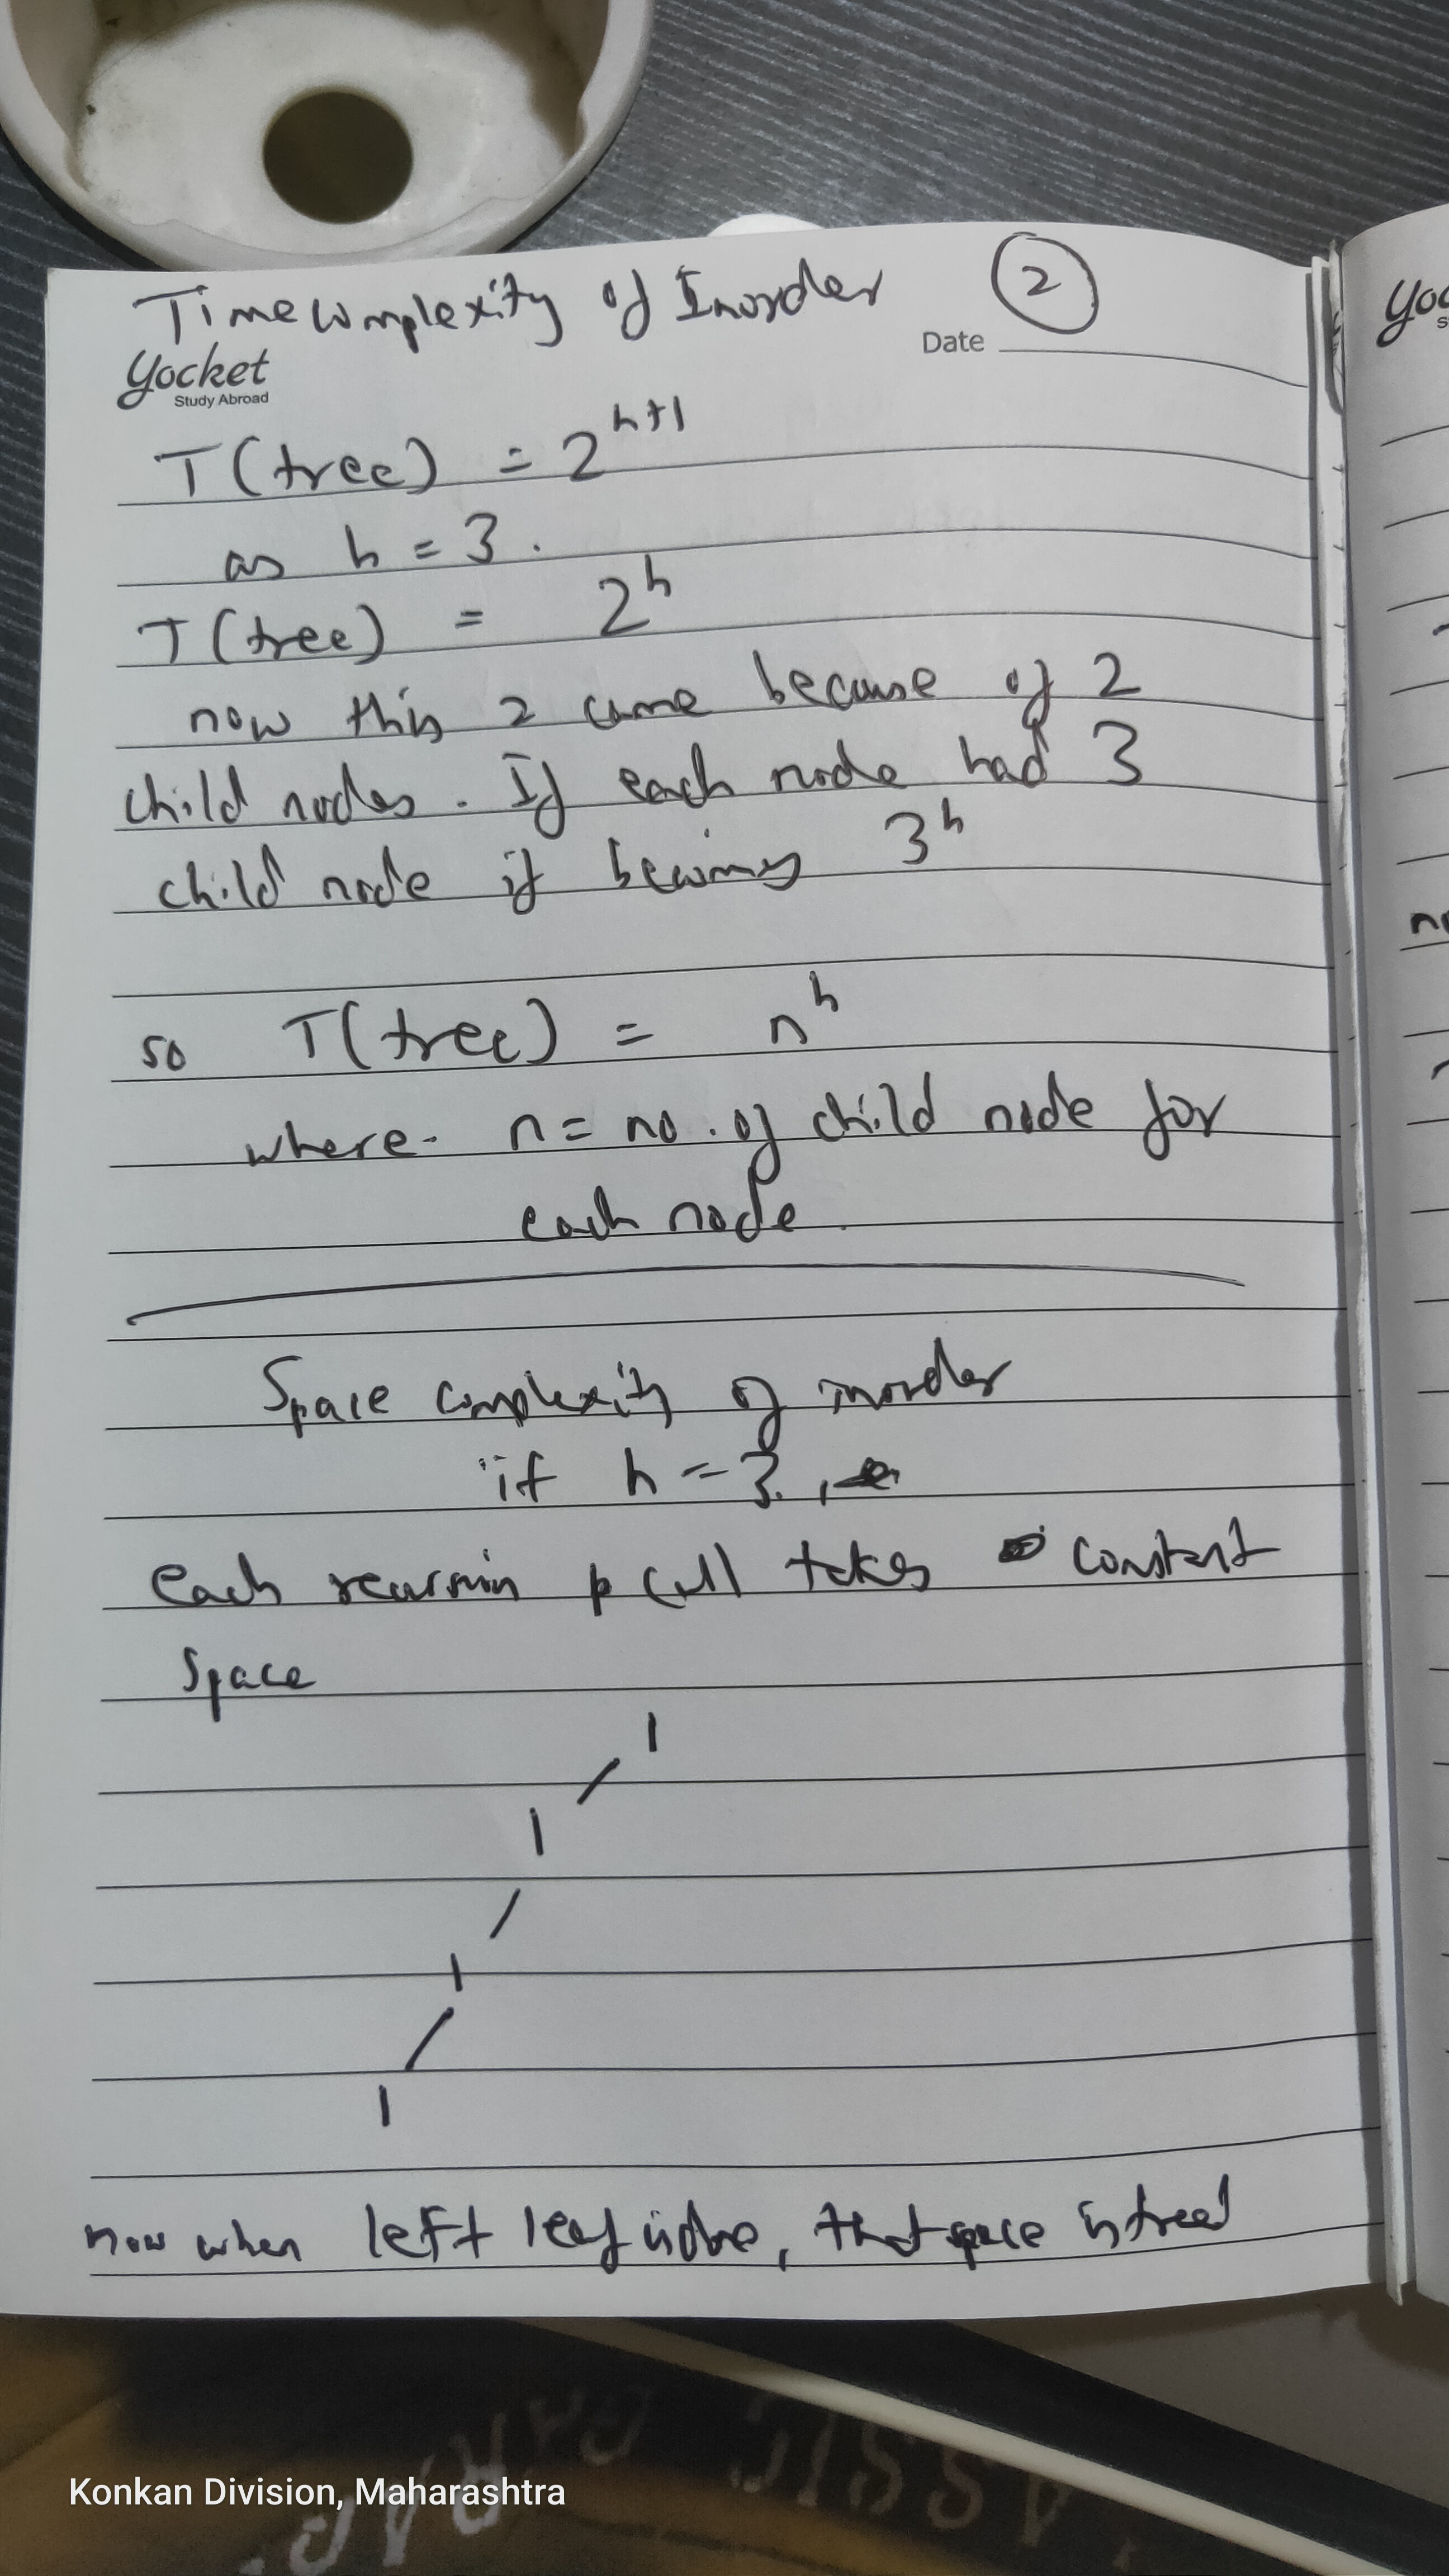 Time complexity of Inorder
2
Date
Yocket
Study Abroad
T(tree) = 2^h+1
as h = 3.
T(tree) = 2^h
now this 2 came because of 2
child nodes. If each node had 3
child node it becomes 3^h
so T(tree) = n^h
where. n = no. of child node for
each node.
Space complexity of inorder
if h = 3,
each recursion call takes constant
space
1
/
1
/
1
/
1
now when left leaf is done, that space is freed
Konkan Division, Maharashtra